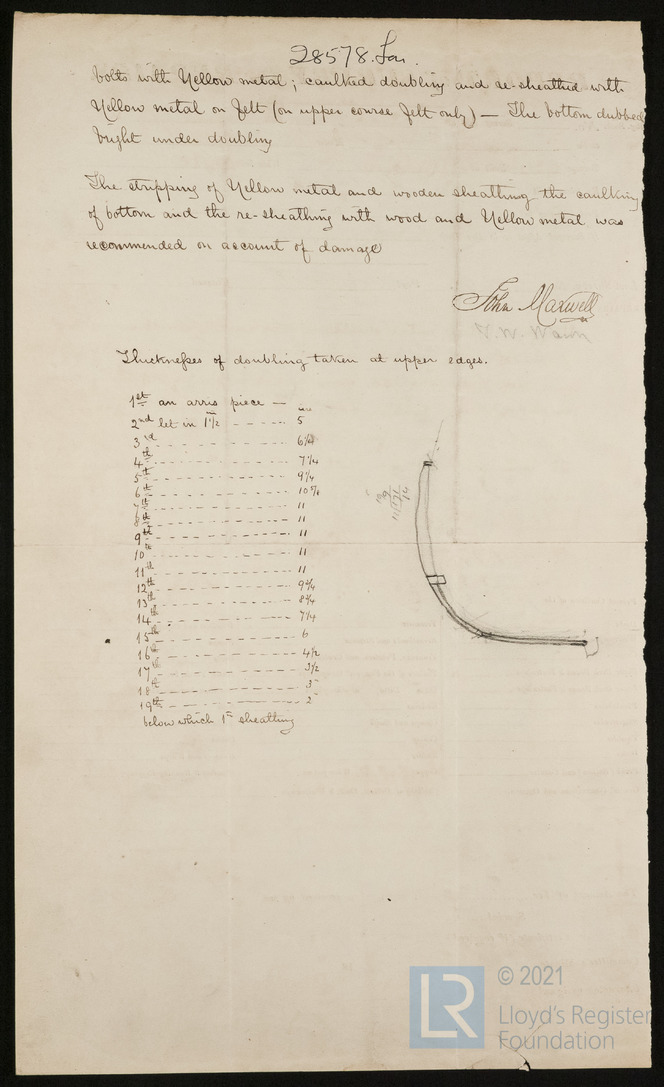 28578. Ion.
bolts with Yellow metal; caulked doubling and re-sheathed with
Yellow metal on Felt (on upper course Felt only) — The bottom dubbed
bright under doubling
The stripping of Yellow metal and wooden sheathing the caulking
of bottom and the re-sheathing with wood and Yellow metal was
recommended on account of damage
John Maxwell
Thicknesses of doubling taken at upper edges.
1st an arris piece —
2nd let in 1 1/2 - - - - - 5
3rd - - - - - - - - 6 1/4
4th - - - - - - - - 7 1/4
5th - - - - - - - - 9 1/4
6th - - - - - - - - 10 5/8
7th - - - - - - - - 11
8th - - - - - - - - 11
9th - - - - - - - - 11
10th - - - - - - - - 11
11th - - - - - - - - 11
12th - - - - - - - - 9 3/4
13th - - - - - - - - 8 3/4
14th - - - - - - - - 7 1/4
15th - - - - - - - - 6
16th - - - - - - - - 4 1/2
17th - - - - - - - - 3 1/2
18th - - - - - - - - 3
19th - - - - - - - - 2
below which 1in sheathing
LR
© 2021
Lloyd's Register
Foundation